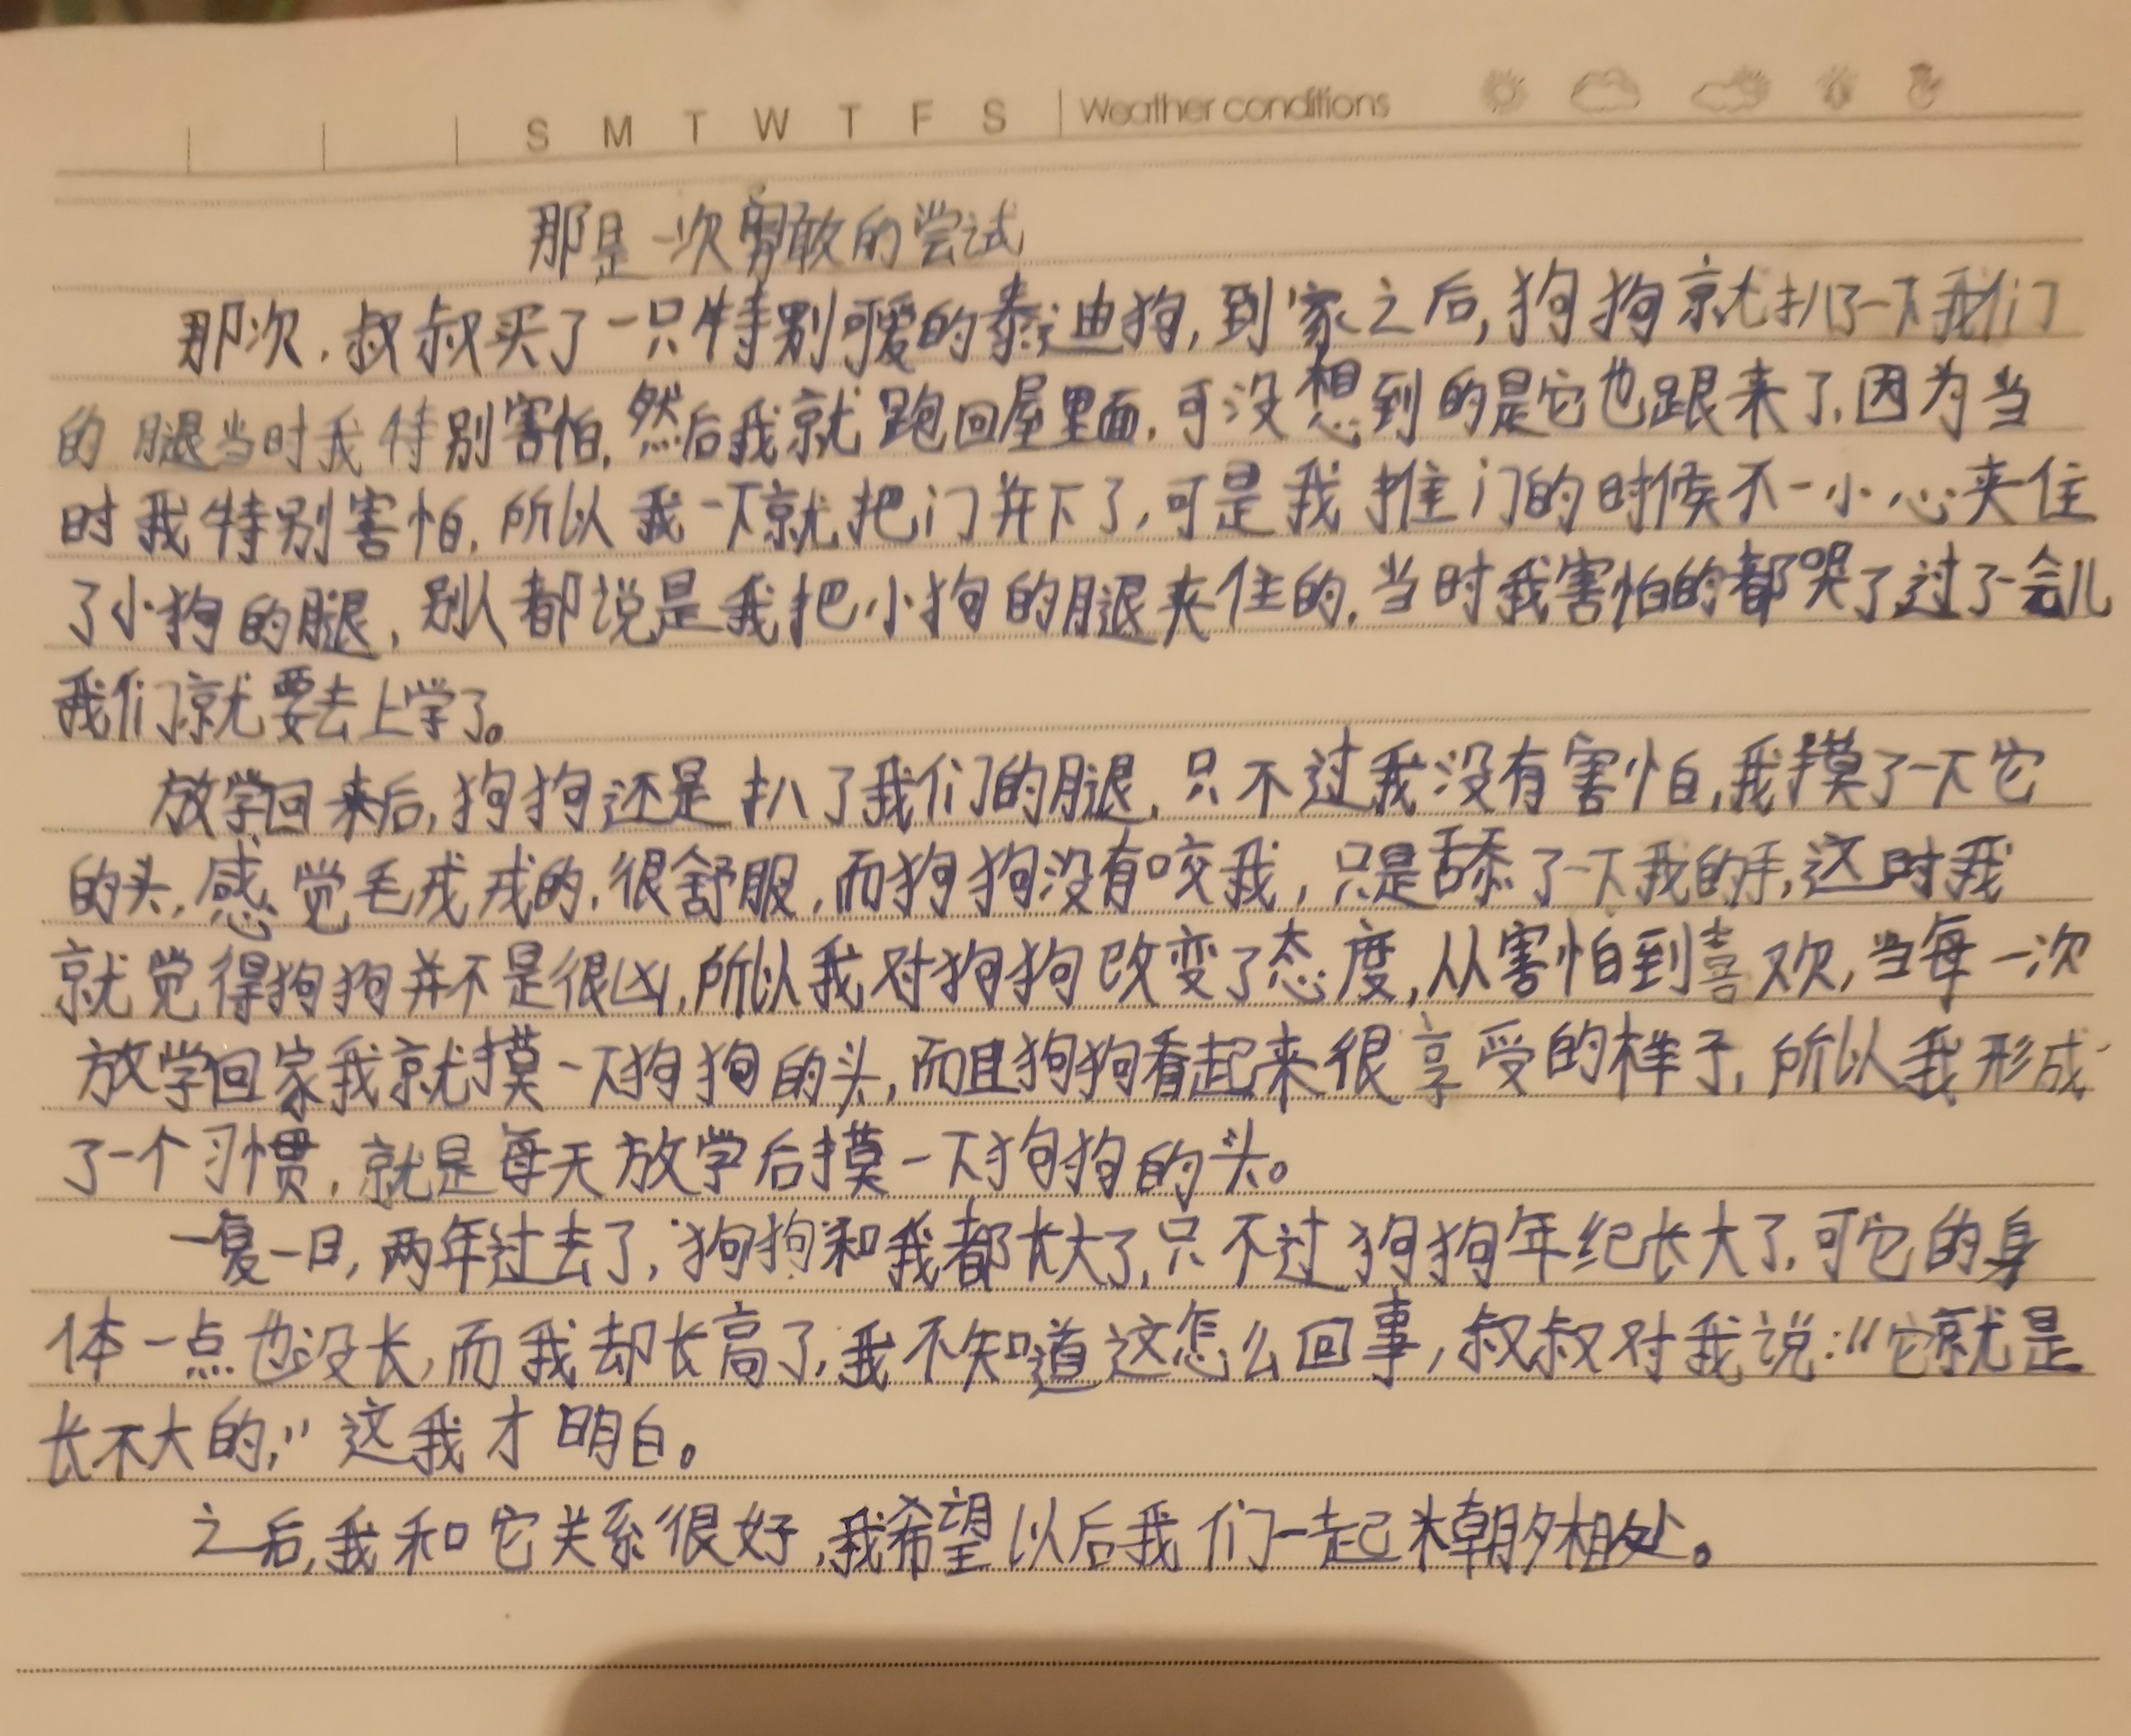 S M T W T F S Weather conditions
那是一次勇敢的尝试
那次,叔叔买了一只特别可爱的泰迪狗,到家之后,狗狗就扒了一下我们
的腿当时我特别害怕,然后我就跑回屋里面,可没想到的是它也跟来了,因为当
时我特别害怕,所以我一下就把门并下了,可是我推门的时候不一小心夹住
了小狗的腿,别人都说是我把小狗的腿夹住的,当时我害怕的都哭了过了一会儿
我们就要去上学了。
放学回来后,狗狗还是扒了我们的腿,只不过我没有害怕,我摸了一下它
的头,感觉毛戎戎的,很舒服,而狗狗没有咬我,只是舔了一下我的手,这时我
就觉得狗狗并不是很凶,所以我对狗狗改变了态度,从害怕到喜欢,当每一次
放学回家我就摸一下狗狗的头,而且狗狗看起来很享受的样子,所以我形成
了一个习惯,就是每天放学后摸一下狗狗的头。
一复一日,两年过去了,狗狗和我都长大了,只不过狗狗年纪长大了,可它的身
体一点也没长,而我却长高了,我不知道这怎么回事,叔叔对我说:“它就是
长不大的,”这我才明白。
之后,我和它关系很好,我希望以后我们一起来朝夕相处。